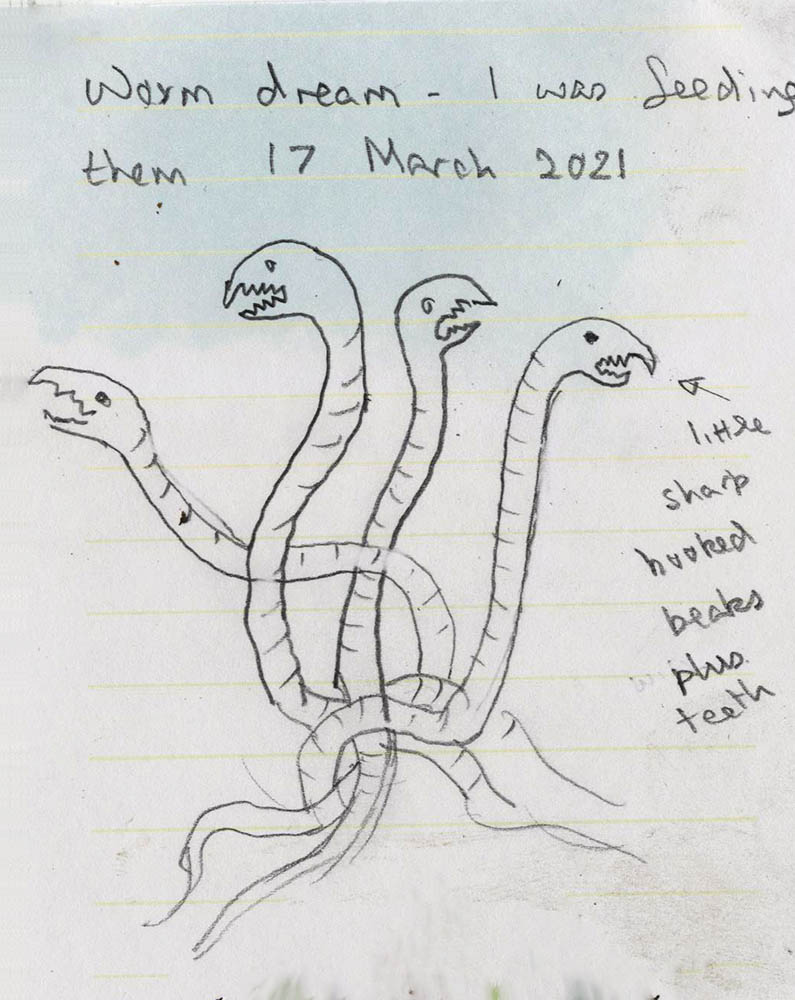 Worm dream - I was feeding
them 17 March 2021
little
sharp
hooked
beaks
plus
teeth